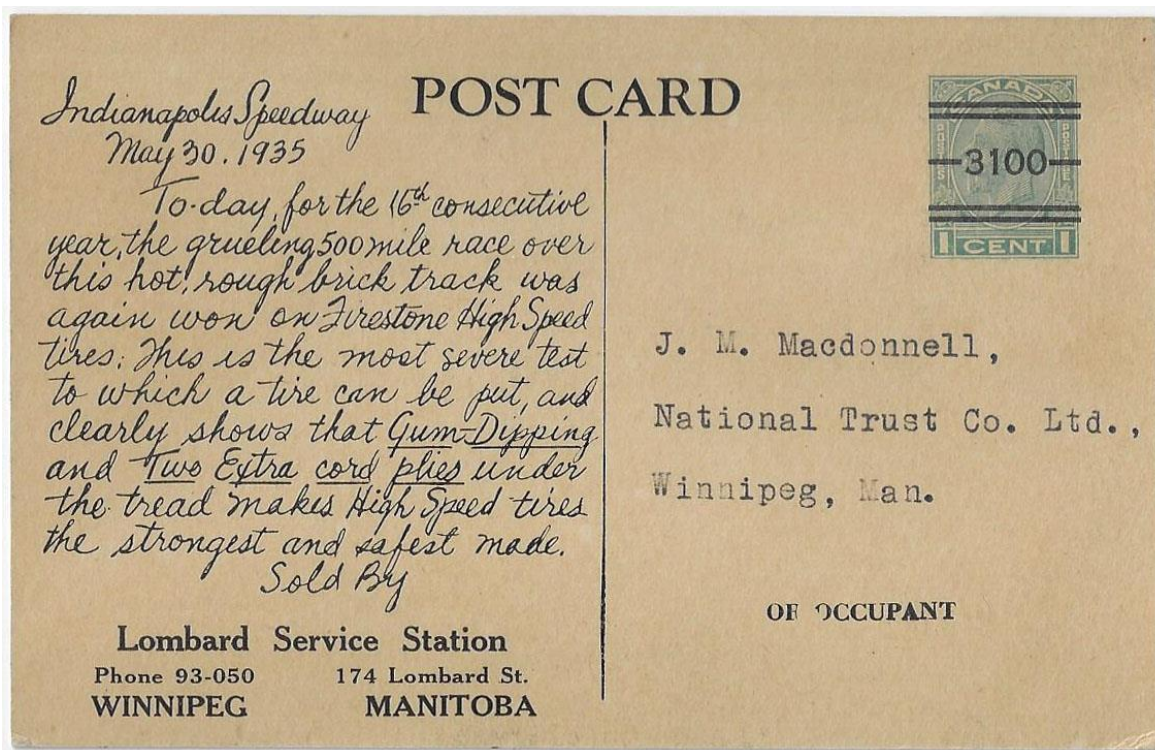 POST CARD
Indianapolis Speedway
May 30. 1935
To-day, for the 16th consecutive
year, the grueling 500 mile race over
this hot, rough brick track was
again won on Firestone High Speed
tires. This is the most severe test
to which a tire can be put, and
clearly shows that Gum-Dipping
and Two Extra cord plies under
the tread makes High Speed tires
the strongest and safest made.
Sold By
Lombard Service Station
Phone 93-050 174 Lombard St.
WINNIPEG MANITOBA
CANADA
POSTES POSTAGE
3100
1 CENT 1
J. M. Macdonnell,
National Trust Co. Ltd.,
Winnipeg, Man.
OR OCCUPANT